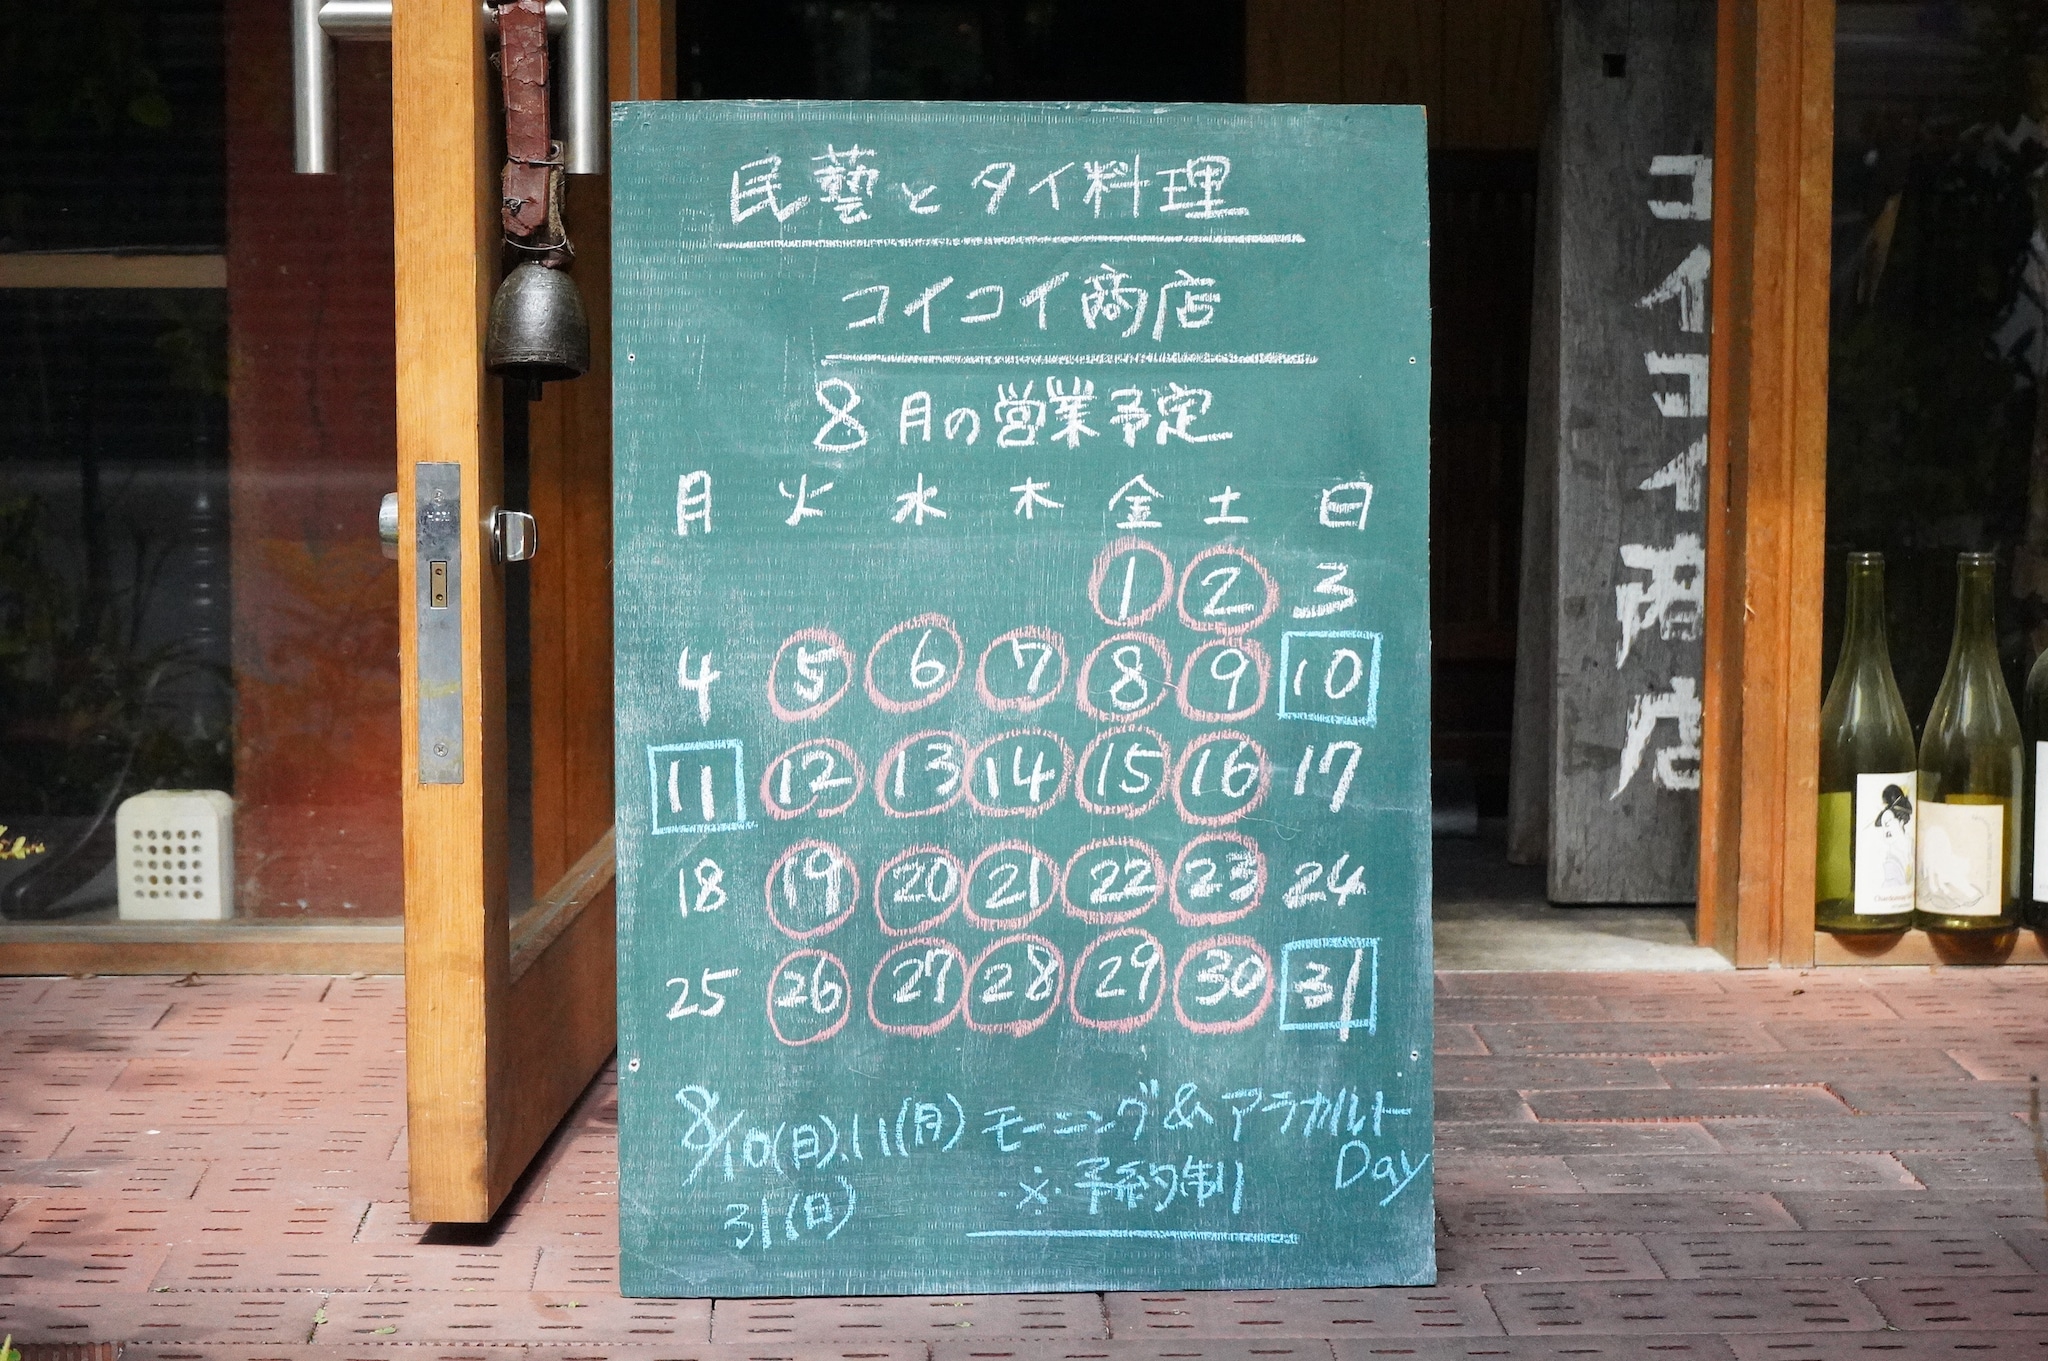 民藝とタイ料理
コイコイ商店
8月の営業予定
月 火 水 木 金 土 日
1 2 3
4 5 6 7 8 9 10
11 12 13 14 15 16 17
18 19 20 21 22 23 24
25 26 27 28 29 30 31
8/10(日)、11(月) モーニング&アラカルト
Day
31(日) ※予約制
コイコイ商店